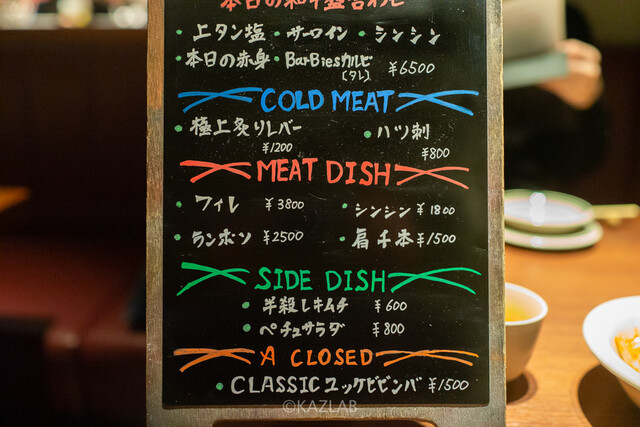 本日の和牛盛合わせ
・上タン塩 ・サーロイン ・シンシン
・本日の赤身 ・BarBiesカルビ
(タレ) ¥6500
COLD MEAT
・極上炙りレバー ・ハツ刺
¥1200 ¥800
MEAT DISH
・フィレ ¥3800 ・シンシン ¥1800
・ランボソ ¥2500 ・肩千本 ¥1500
SIDE DISH
・半殺しキムチ ¥600
・ペチュサラダ ¥800
A CLOSED
・CLASSICユッケビビンバ ¥1500
©KAZLAB